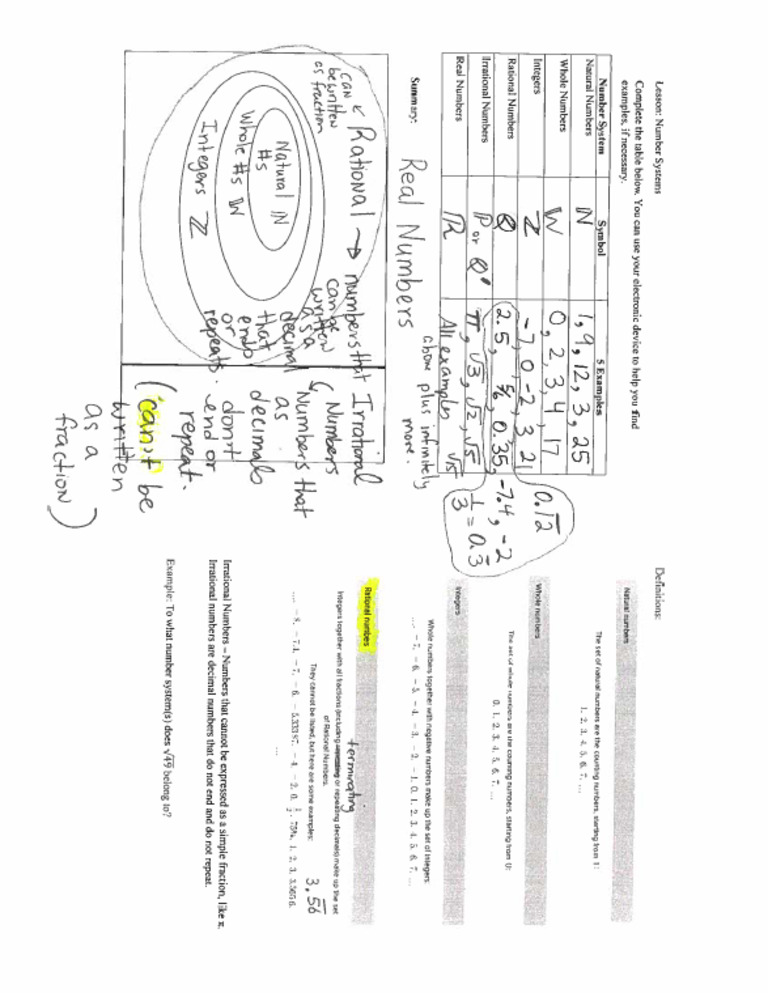 Lesson: Number Systems
Complete the table below. You can use your electronic device to help you find
examples, if necessary.
Number System Symbol 5 Examples
Natural Numbers ℕ 1, 9, 12, 3, 25
Whole Numbers W 0, 2, 3, 4, 17
Integers ℤ -7, 0, -2, 3, 21
Rational Numbers ℚ 2.5, 5/6, 0.35, -7.4, -2
0.1̅2̅
1/3 = 0.3̅
Irrational Numbers P or Q' π, √3, √2, √5, √15
Real Numbers ℝ All examples
above plus infinitely
more.
Summary:
Real Numbers
Rational → numbers that
can be
written
as a
decimal
that
ends
or
repeats.
can
be written
as fraction
Natural ℕ
#s
Whole #s W
Integers ℤ
Irrational
(Numbers
Numbers that
as
decimals
don't
end or
repeat.
(can't be
written
as a
fraction)
Definitions:
Natural numbers
The set of natural numbers are the counting numbers, starting from 1:
1, 2, 3, 4, 5, 6, 7, ...
Whole numbers
The set of whole numbers are the counting numbers, starting from 0:
0, 1, 2, 3, 4, 5, 6, 7, ...
Integers
Whole numbers together with negative numbers make up the set of integers:
..., -7, -6, -5, -4, -3, -2, -1, 0, 1, 2, 3, 4, 5, 6, 7, ...
Rational numbers
terminating
Integers together with all fractions (including repeating or repeating decimals) make up the set
of Rational Numbers.
They cannot be listed, but here are some examples:
3.5̅6̅
..., -8, -7.4, -7, -6, -5.33387, -4, -2, 0, 1/2, 75%, 1, 2, 3, 3.5656
...
Irrational Numbers – Numbers that cannot be expressed as a simple fraction, like π.
Irrational numbers are decimal numbers that do not end and do not repeat.
Example: To what number system(s) does √49 belong to?